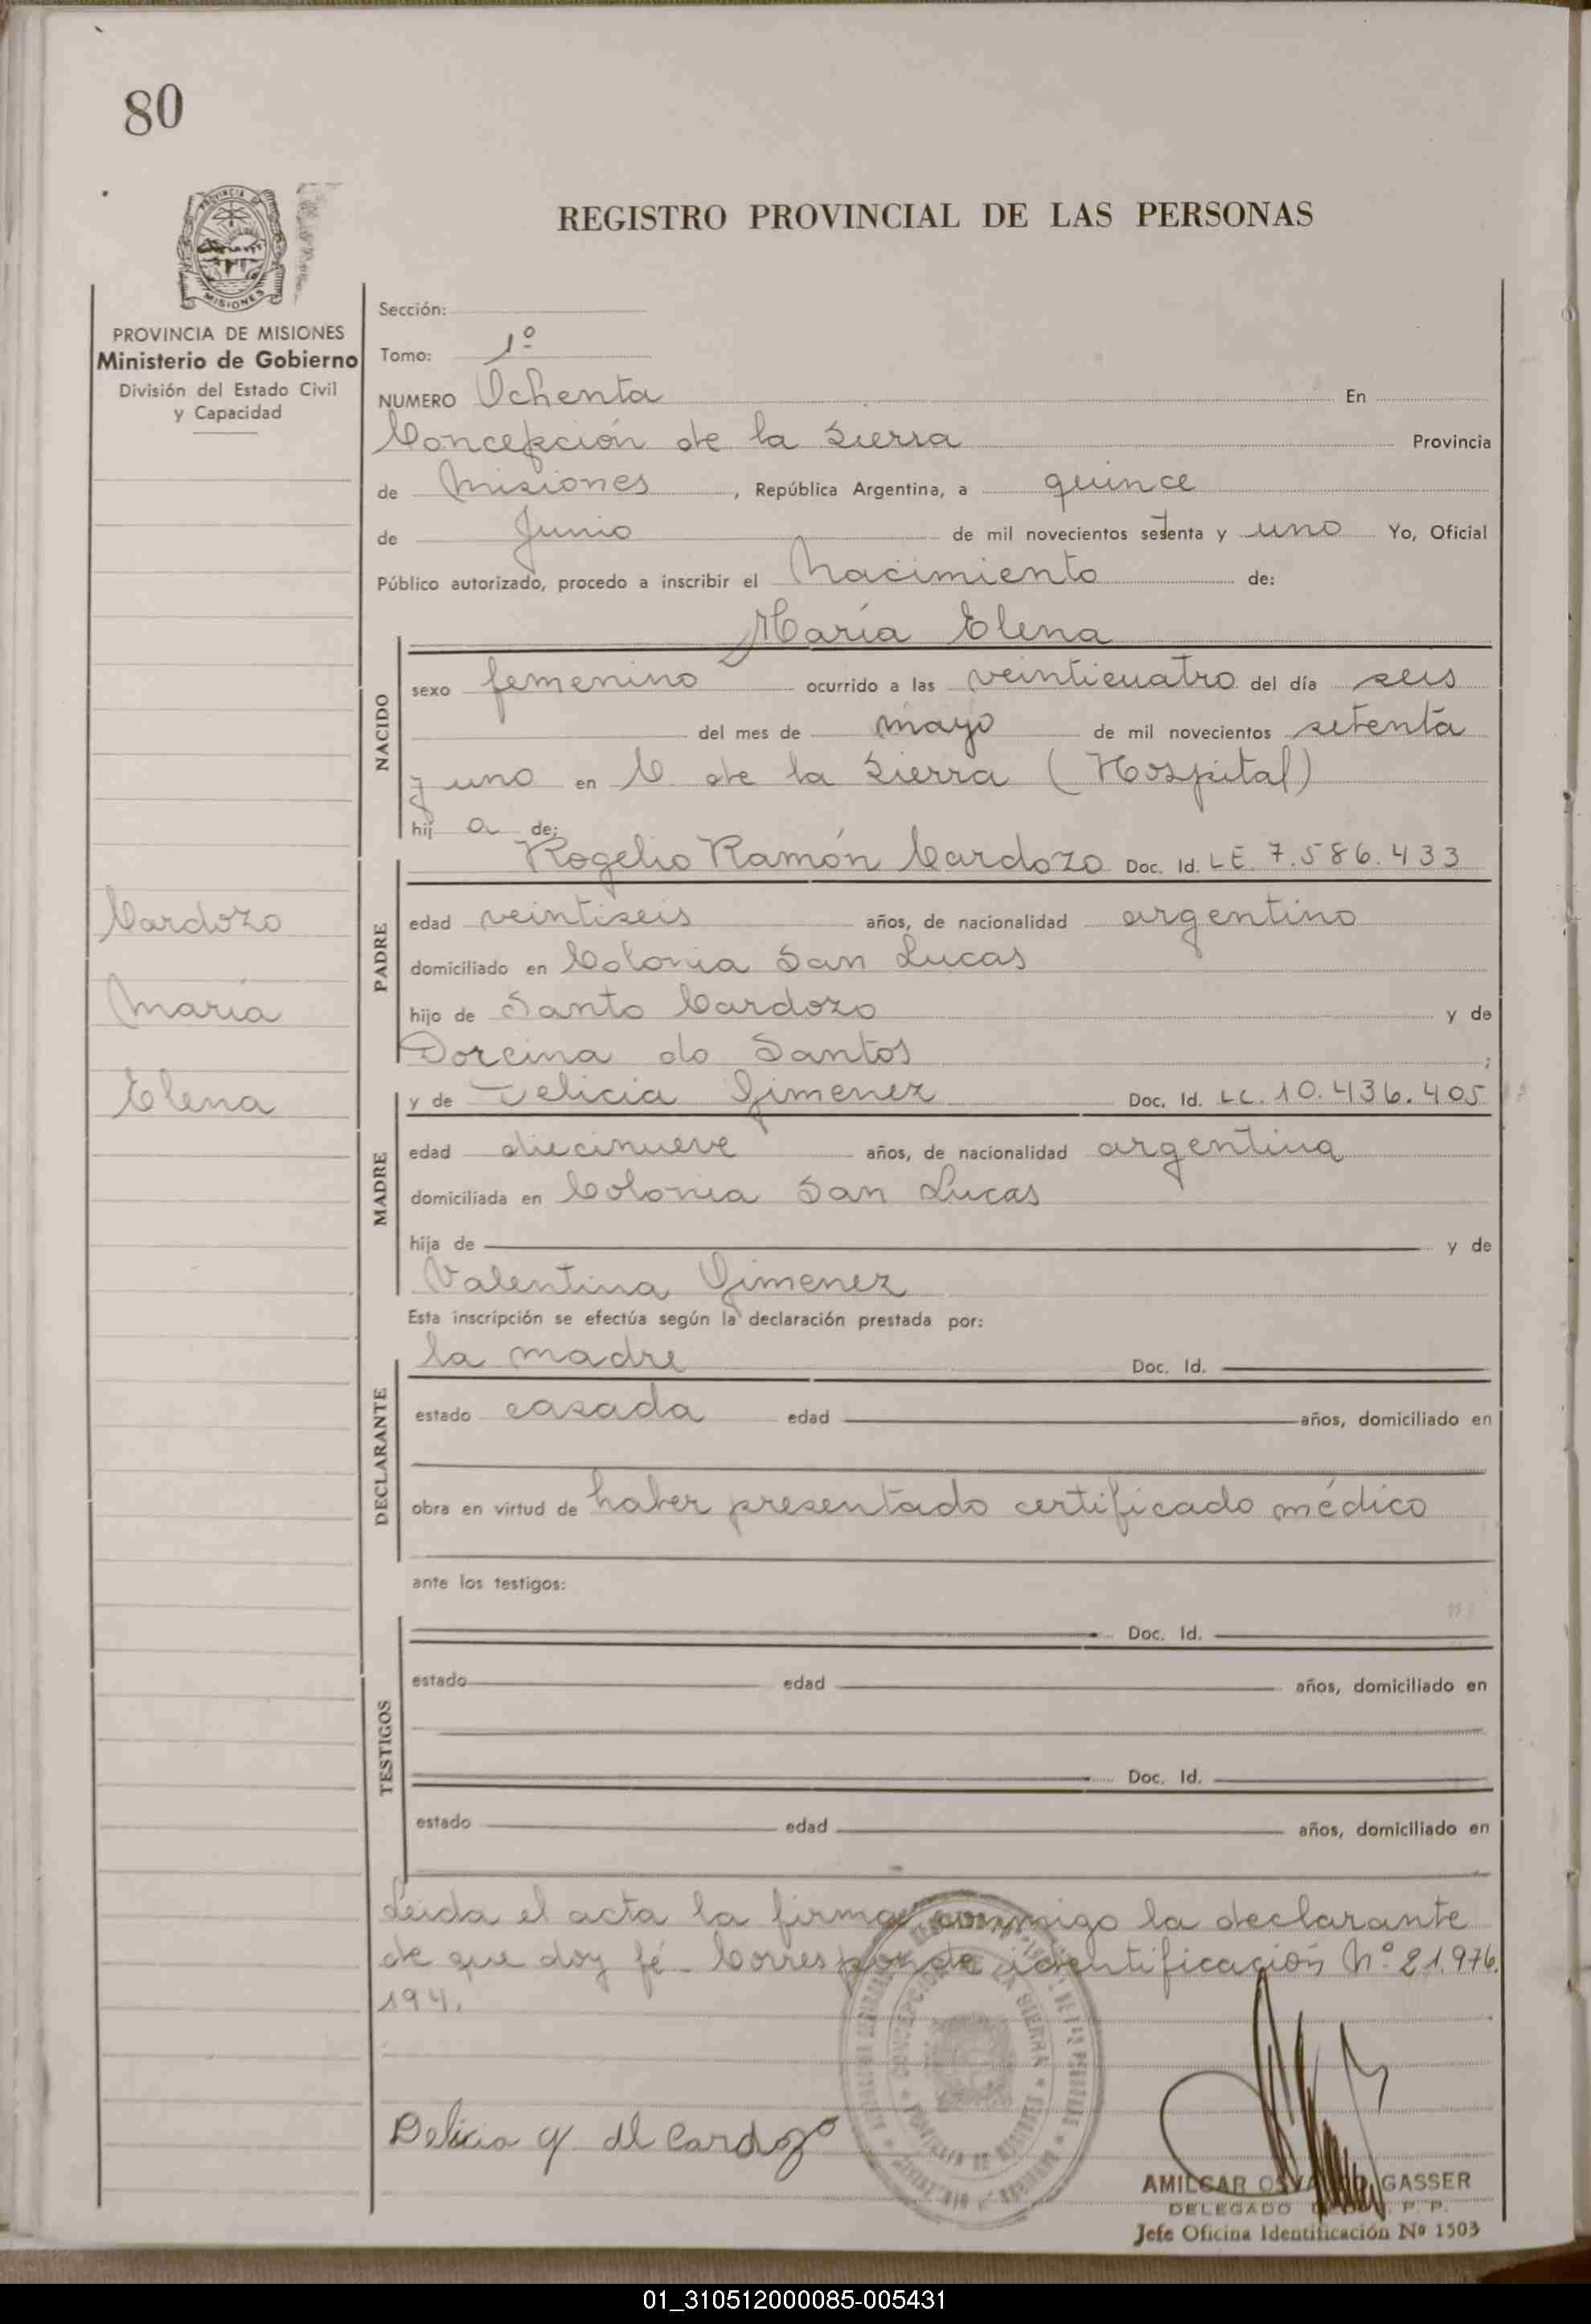 80
PROVINCIA DE
MISIONES
REGISTRO PROVINCIAL DE LAS PERSONAS
PROVINCIA DE MISIONES
Ministerio de Gobierno
División del Estado Civil
y Capacidad
Sección:
Tomo: 1º
NUMERO Ochenta En
Concepción de la Sierra Provincia
de Misiones, República Argentina, a quince
de Junio de mil novecientos setenta y uno Yo, Oficial
Público autorizado, procedo a inscribir el Nacimiento de:
NACIDO
María Elena
sexo femenino ocurrido a las veinticuatro del día seis
del mes de mayo de mil novecientos setenta
y uno en C. de la Sierra (Hospital)
hij a de:
Cardozo
María
Elena
PADRE
Rogelio Ramón Cardozo Doc. Id. LE. 7.586.433
edad veintiseis años, de nacionalidad argentino
domiciliado en Colonia San Lucas
hijo de Santo Cardozo y de
Dorcina do Santos ;
MADRE
y de Felicia Gimenez Doc. Id. LC. 10.436.405
edad diecinueve años, de nacionalidad argentina
domiciliada en Colonia San Lucas
hija de y de
Valentina Gimenez
Esta inscripción se efectúa según la declaración prestada por:
DECLARANTE
la madre Doc. Id.
estado casada edad años, domiciliado en
obra en virtud de haber presentado certificado médico
ante los testigos:
TESTIGOS
Doc. Id.
estado edad años, domiciliado en
Doc. Id.
estado edad años, domiciliado en
Leida el acta la firma conmigo la declarante
de que doy fé. Corresponde identificación Nº 21.976.
194.
Delicia G de Cardozo
AMILCAR OSVALDO GASSER
DELEGADO P. P.
Jefe Oficina Identificación Nº 1503
01_310512000085-005431